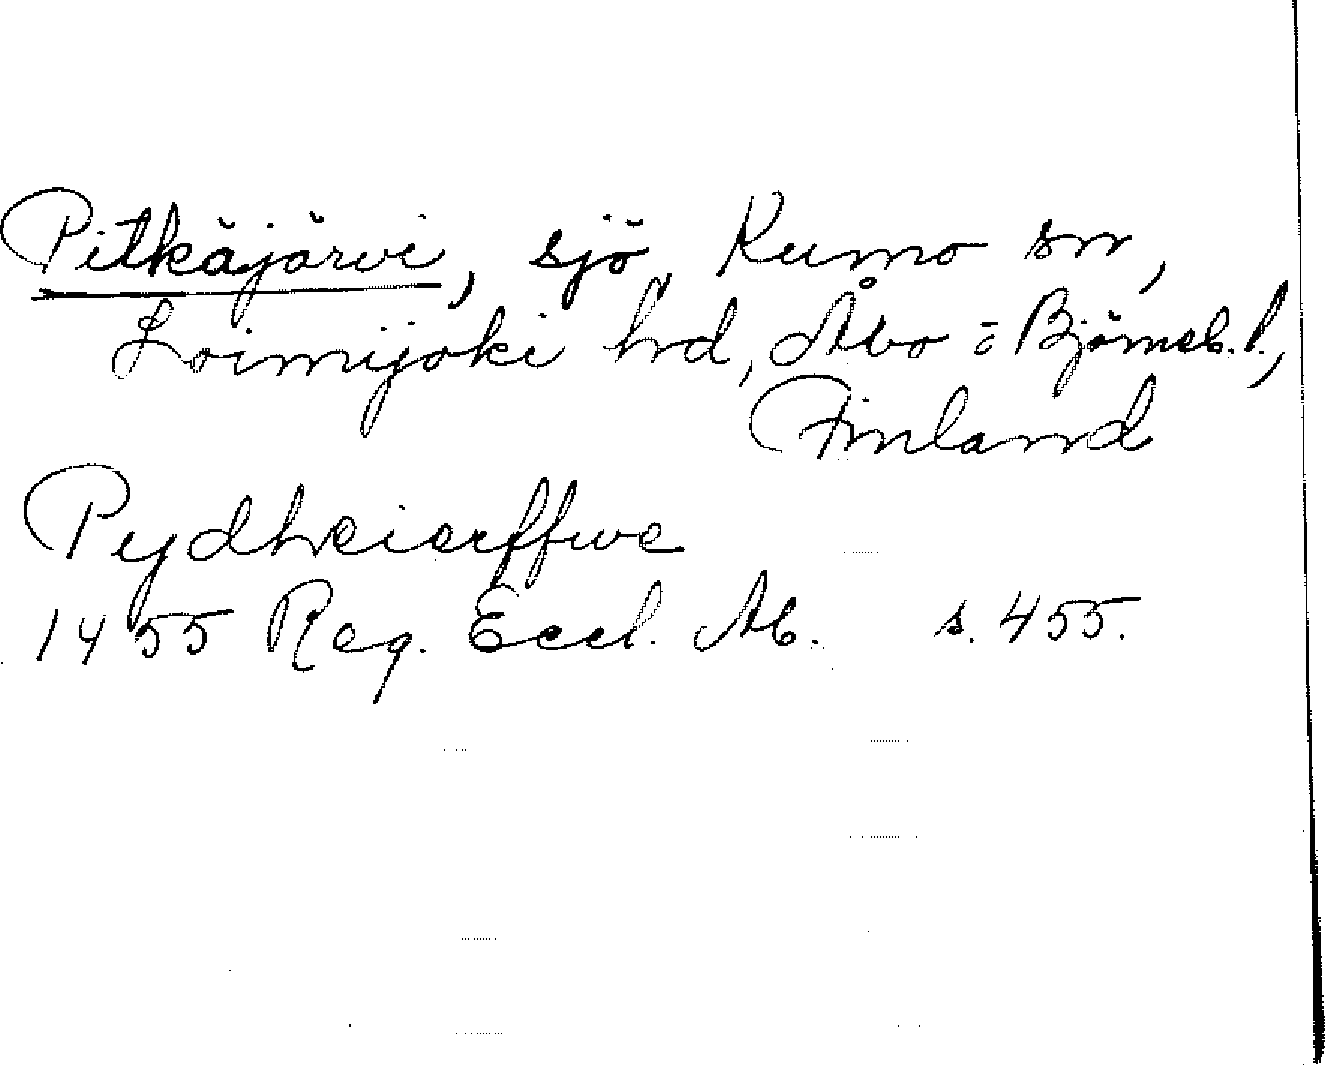 Pitkäjärvi, sjö, Kumo sn,
Loimijoki hd, Åbo o Björneb. l.,
Finland
Pydheierffwe
1455 Reg. Eccl. Ab. s. 455.